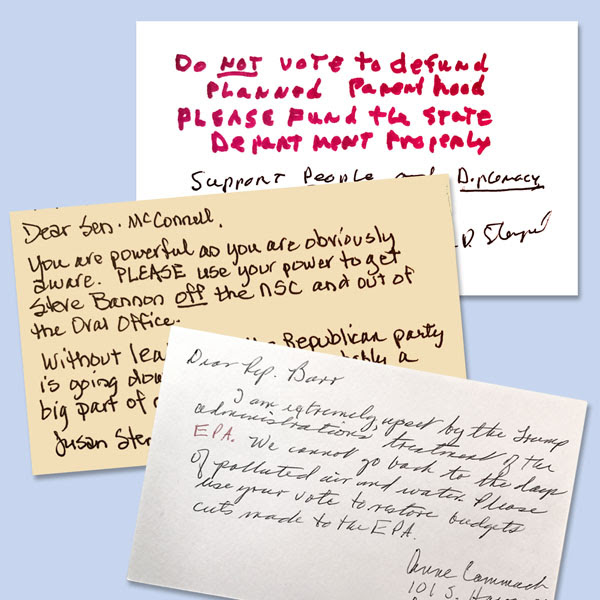 Do NOT vote to defund
Planned Parenthood
PLEASE Fund the STATE
Department Properly
Support People and Diplomacy
D.
Dear Sen. McConnell,
You are powerful as you are obviously
aware. PLEASE use your power to get
Steve Bannon off the NSC and out of
the Oval Office.
Without the Republican party
is going a
big part of
Susan
Dear Rep. Barr
I am extremely upset by the Trump
administrations treatment of the
EPA. We cannot go back to the days
of polluted air and water. Please
use your vote to restore budgets
cuts made to the EPA.
Anne Cammack
101 S.